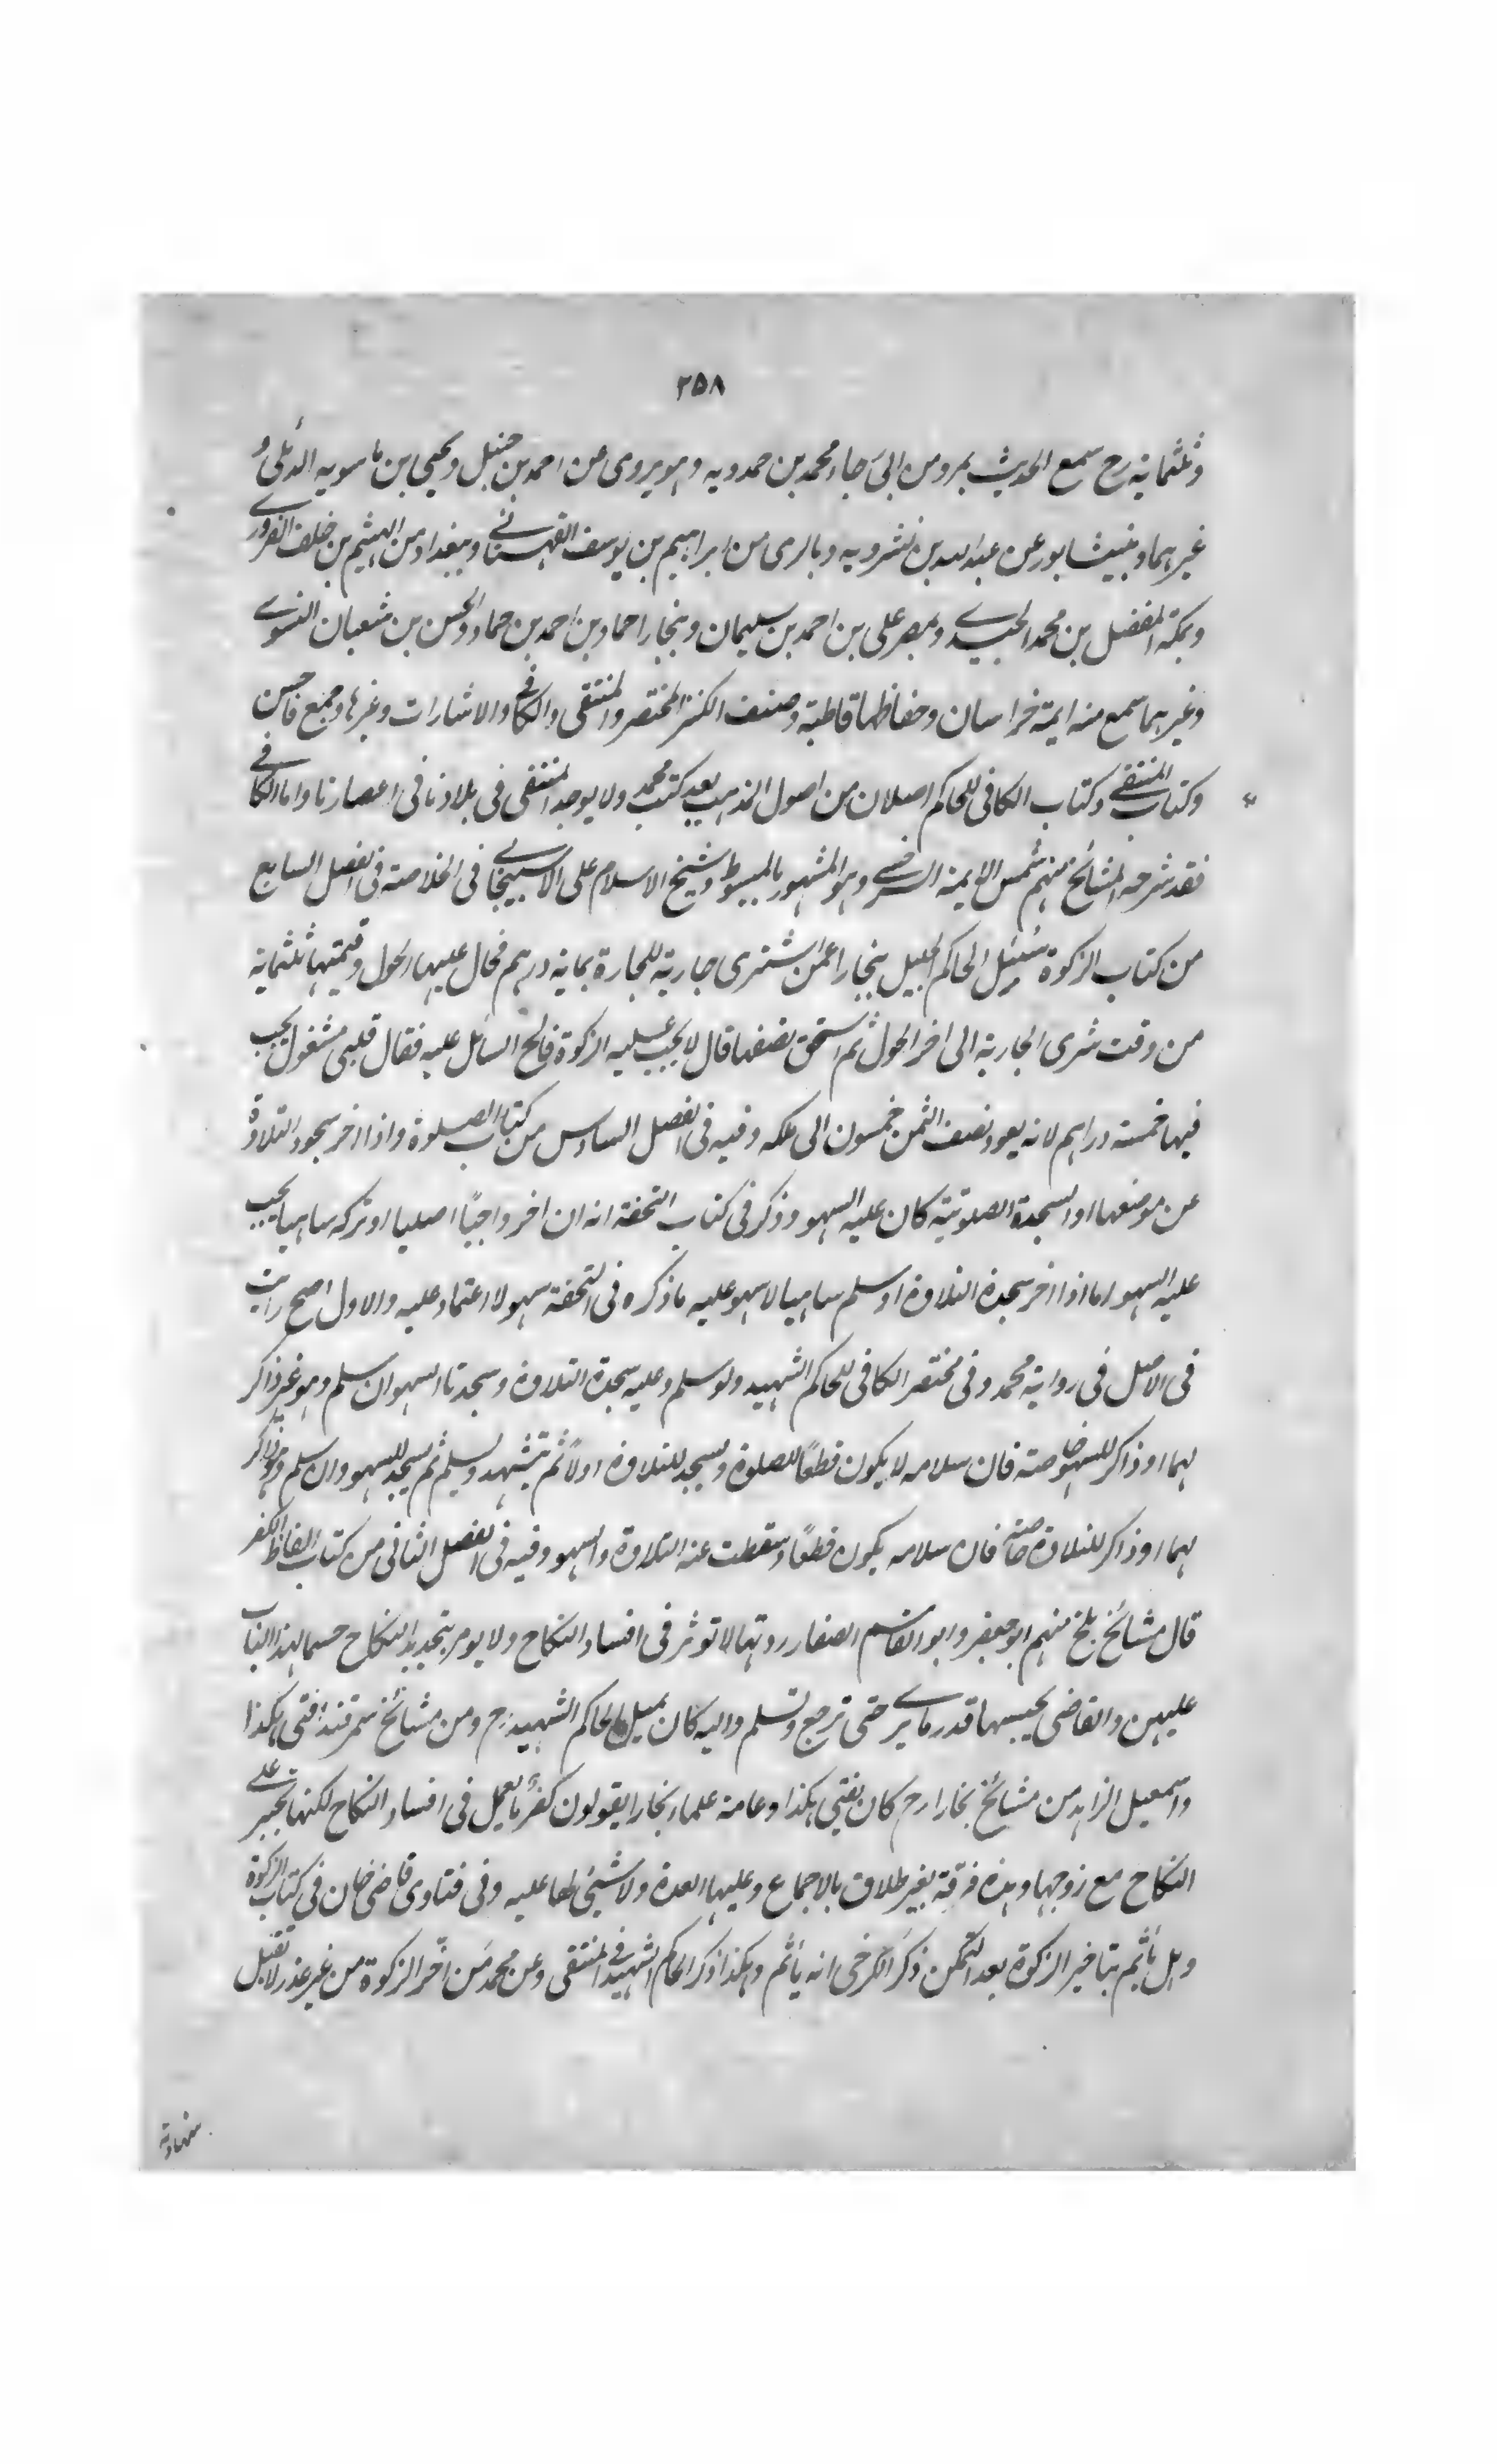 ٢٥٨
وثلثمایة رح سمع الحدیث بمرو من ابی رجاء محمد بن حمدویه وهو یروی عن احمد بن حنبل ویحیی بن ماسویه الذهلی و
غیرهما وبنیشابور عن عبد الله بن شیرویه وبالری من ابراهیم بن یوسف القهستانی وببغداد من الهیثم بن خلف الدوری
وبمکة المفضل بن محمد الجندی وبمصر علی بن احمد بن سلیمان وببخارا حماد بن احمد بن حماد والحسن بن سفیان النسوی
وغیرهما سمع منه ایمة خراسان وحفاظها قاطبة وصنف الکنز المختصر والمنتقی والکافی والاشارات وغیرها وجمع فاحسن
وکتاب المنتقی وکتاب الکافی للحاکم اصلان من اصول المذهب بعد کتب محمد ولا یوجد المنتقی فی بلادنا فی اعصارنا واما الکافی
فقد شرحه المشائخ منهم شمس الایمة السرخسی وهو المشهور بالمبسوط وشیخ الاسلام علی الاسبیجابی فی الخلاصة فی الفصل السابع
من کتاب الزکوة سُئِل الحاکم الجلیل ببخارا عمن اشتری جاریة للتجارة بمایة درهم فحال علیها الحول وقیمتها ثلثمایة
من وقت شری الجاریة الی اخر الحول ثم استحق نصفها قال لا یجب علیه الزکوة فالح السائل علیه فقال قلبی مشغول یجب
فیها خمسة دراهم لانه یعود نصف الثمن خمسون الی ملکه وفیه فی الفصل السادس من کتاب الصلوة واذا اخر سجود التلاوة
عن موضعها او السجدة الصلوتیة کان علیه السهو وذکر فی کتاب التحفة انه ان اخر واجبًا اصلیا او ترکه ساهیا یجب
علیه السهو اما اذا اخر سجدة التلاوة او سلم ساهیا لا سهو علیه ما ذکره فی التحفة سهو لا اعتماد علیه والاول اصح رایت
فی الاصل فی روایة محمد وفی مختصر الکافی للحاکم الشهید ولو سلم وعلیه سجدة التلاوة وسجدتا السهو ان سلم وهو غیر ذاکر
لهما او ذاکر للسهو خاصة فان سلامه لا یکون قطعًا للصلوة ویسجد للتلاوة اولاً ثم یتشهد ویسلم ثم یسجد للسهو وان سلم وهو ذاکر
لهما او ذاکر للتلاوة خاصة فان سلامه یکون قطعًا وسقطت عنه التلاوة والسهو وفیه فی الفصل الثانی من کتاب الفاظ الکفر
قال مشائخ بلخ منهم ابو جعفر وابو القاسم الصفار ردتها لا توثر فی افساد النکاح ولا یومر بتجدید النکاح حسما لهذا الباب
علیهن والقاضی یحبسها قدر ما یری حتی ترجع وتسلم والیه کان یمیل الحاکم الشهید رح ومن مشائخ سمرقند افتی هکذا
واسمعیل الزاهد من مشائخ بخارا رح کان یفتی هکذا وعامة علماء بخارا یقولون کفرها یعمل فی افساد النکاح لکنها تجبر علی
النکاح مع زوجها وهذه فرقة بغیر طلاق بالاجماع وعلیها العدة ولا شیئ لها علیه وفی فتاوی قاضی خان فی کتاب الزکوة
وهل یأثم بتاخیر الزکوة بعد التمکن ذکر الکرخی انه یأثم وهکذا ذکر الحاکم الشهید فی المنتقی وعن محمد مَن اخّر الزکوة من غیر عذر لا تقبل